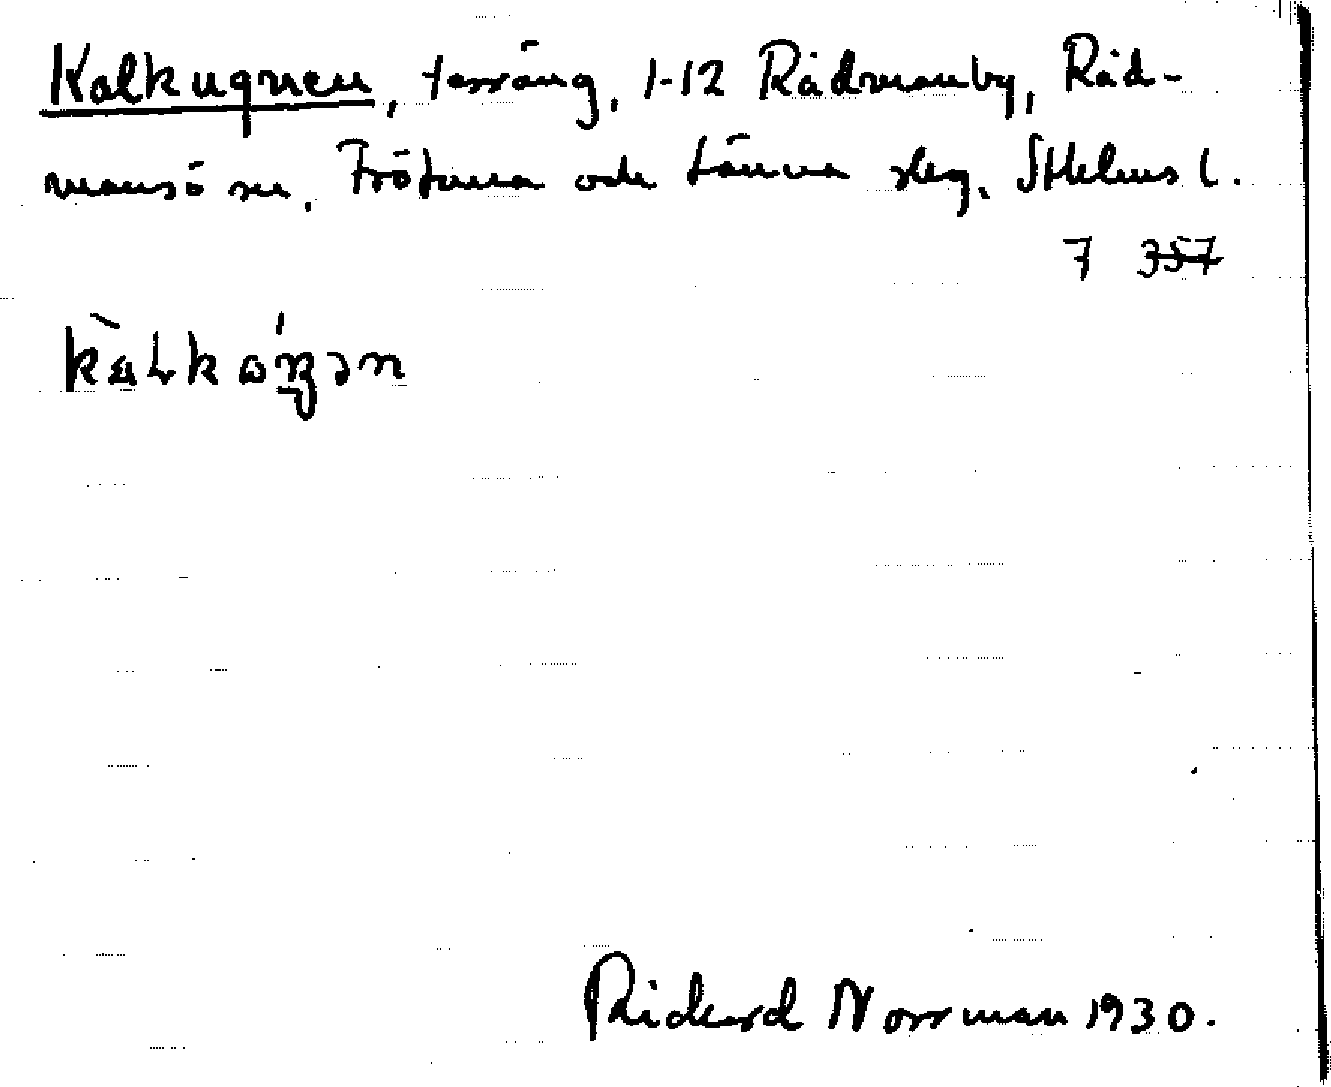 Kalkugnen, terräng, 1-12 Rådmanby, Råd-
mansö sn. Frötuna och Länna skg. Sthlms l.
7 357
Rickard Norrman 1930.